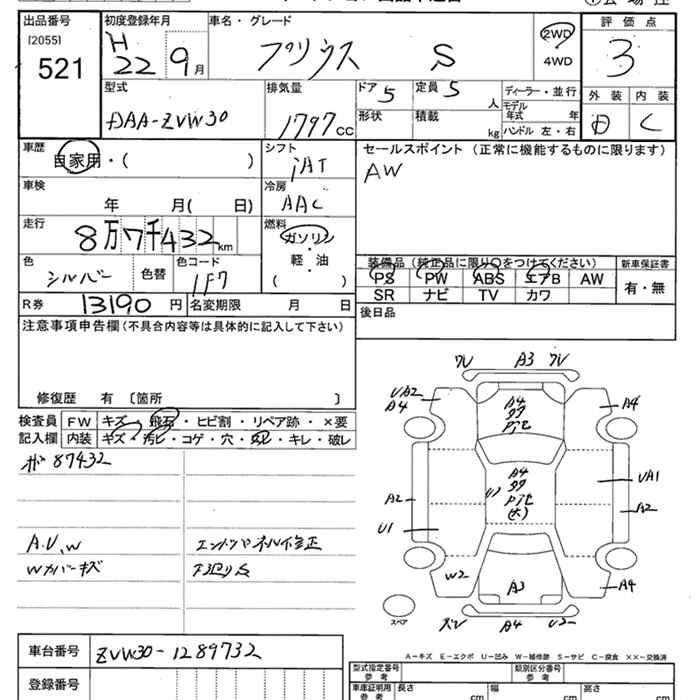 出品番号
[2055]
521
初度登録年月
H
22 9月
車名・グレード
プリウス S
2WD
4WD
評価点
3
外装 内装
D C
型式
DAA-ZVW30
排気量
1797cc
ドア 5
定員 5人
形状
積載 kg
ディーラー・並行
モデル
年式 年
ハンドル 左・右
車歴
自家用・( )
シフト
iAT
セールスポイント (正常に機能するものに限ります)
AW
車検
年 月( 日)
冷房
AAC
走行
8万7千432km
燃料
ガソリン
・
軽・油
( )
色
シルバー
色替
色コード
1F7
装備品 (純正品に限り○をつけてください)
PS PW ABS エアB AW
SR ナビ TV カワ
新車保証書
有・無
R券 13190円
名変期限 月 日
後日品
注意事項申告欄(不具合内容等は具体的に記入して下さい)
修復歴 有 〔箇所 〕
検査員
記入欄
FW キズ・飛石・ヒビ割・リペア跡・×要
内装 キズ・汚レ・コゲ・穴・・キレ・破レ
87432
A.U.W
Wカバーキズ
エンドパネル修正
A3
UA2
A4
A4
A4
A4
UA1
A2
A2
U1
W2
A3
A4
A4
スペア
A-キズ E-エクボ U-凹み W-補修跡 S-サビ C-腐食 ××-交換済
車台番号 ZVW30-1289732
登録番号
型式指定番号
参考
類別区分番号
参考
車庫証明用
参考
長さ cm
幅 cm
高さ cm